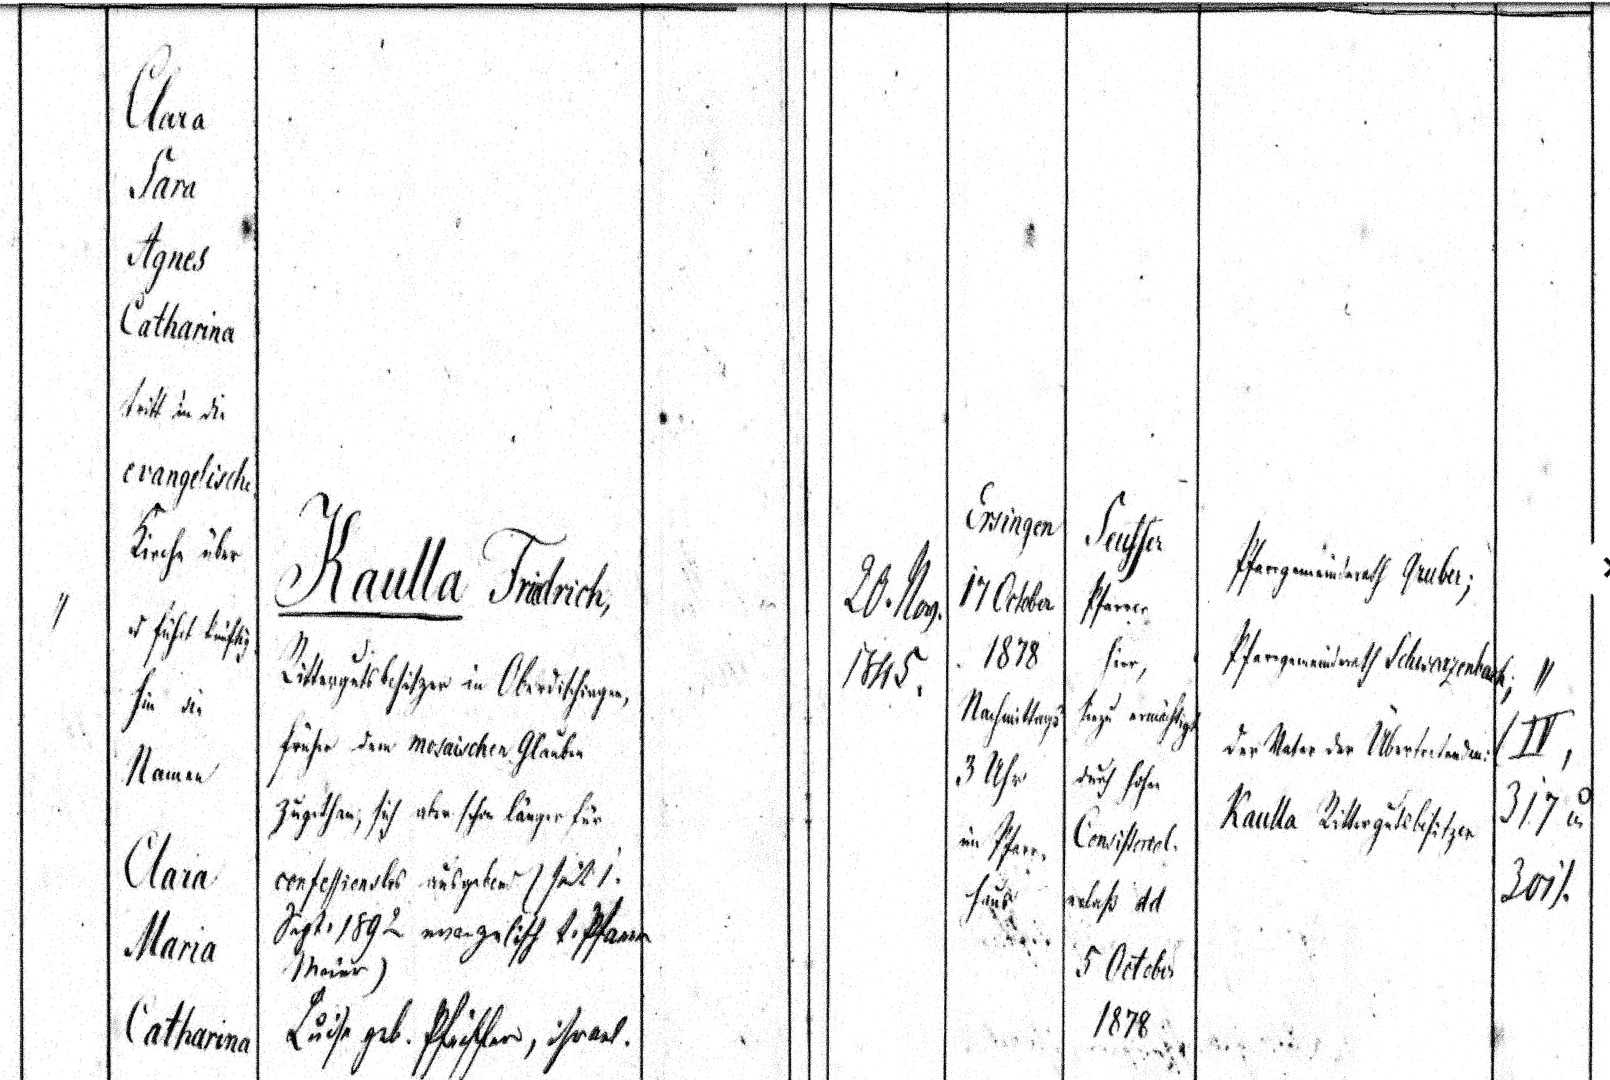 Clara
Sara
Agnes
Catharina
tritt in die
evangelische
Kirche über
u führt künftig
hin die
Namen
Clara
Maria
Catharina
"
Kaulla Friedrich,
Rittergutsbesitzer in Oberdischingen,
früher dem mosaischen Glauben
zugethan, sich aber schon länger für
confessionslos ausgebend (seit 1.
Sept. 1892 evangelisch d. Pfarrer
Maier)
Luise geb. Pfeiffer, israel.
20. Nov.
1845.
Ersingen
17 October
1878
Nachmittags
3 Uhr
im Pfarr-
haus
Seusser
Pfarrer
hier,
hiezu ermächtigt
durch hohen
Consistorial-
erlaß dd
5 October
1878
Pfarrgemeinderath Gruber;
Pfarrgemeinderath Schwarzenbach;
der Vater der Übertretenden:
Kaulla Rittergutsbesitzer
"
(IV,
317 u
301).